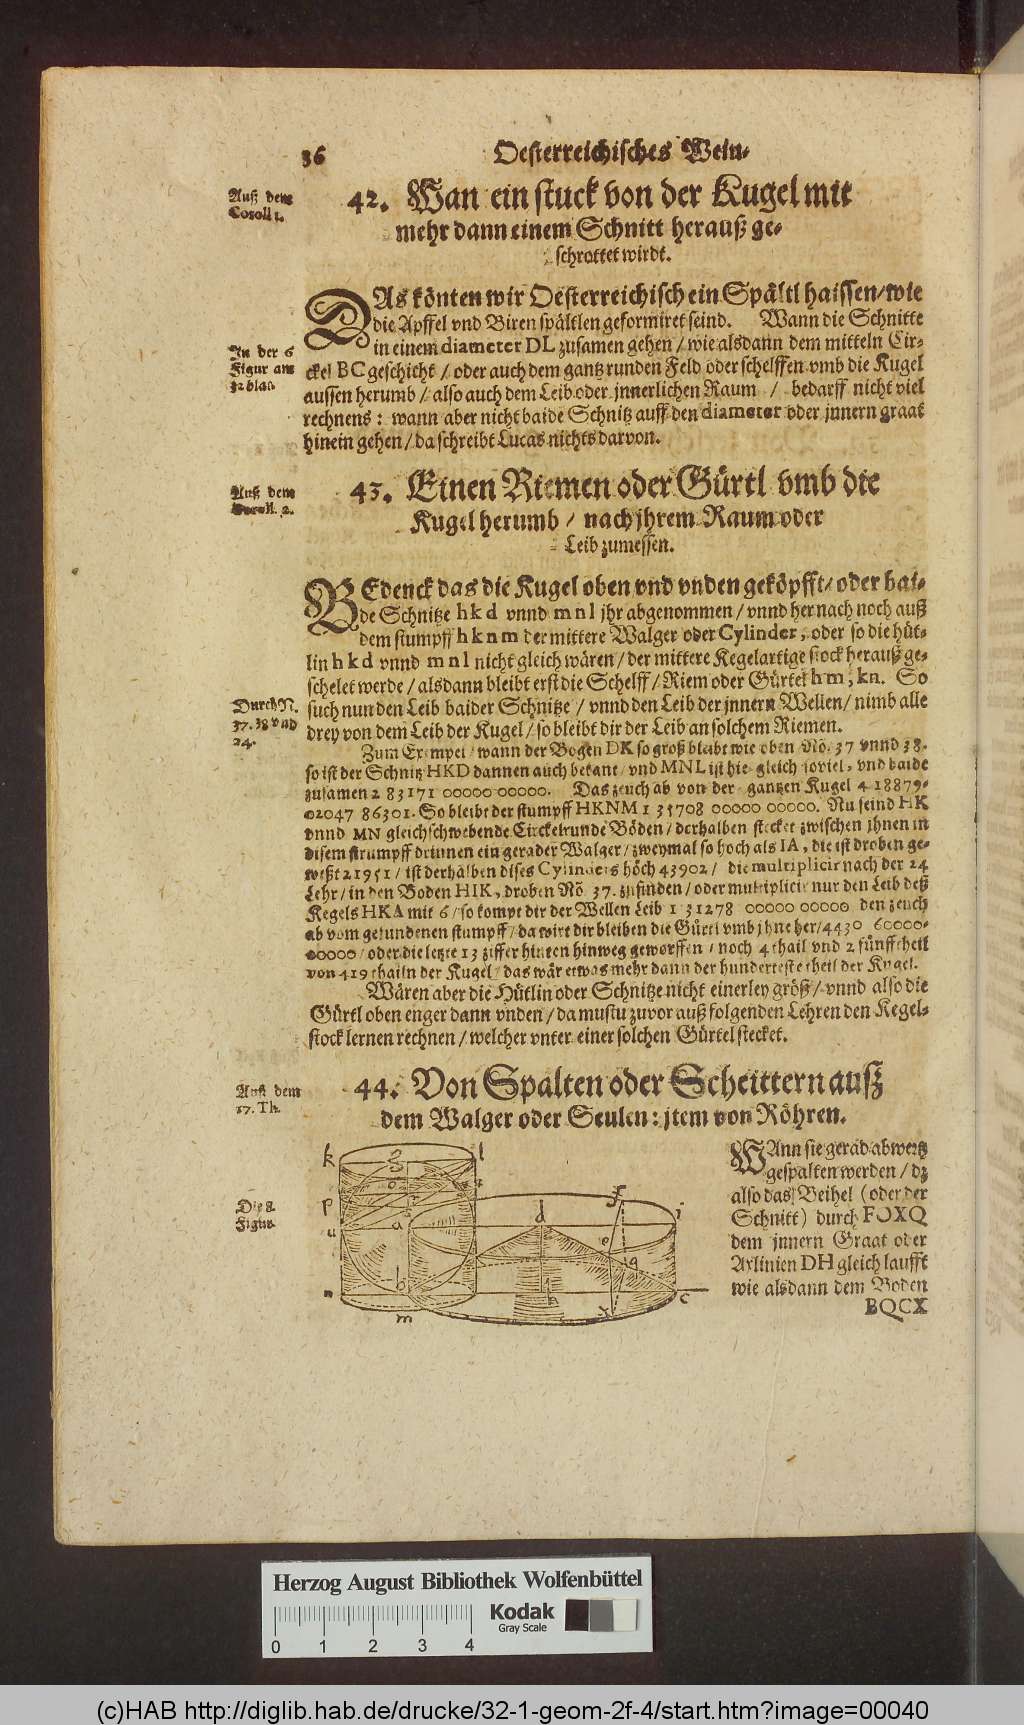 36
Oesterreichisches Wein-
Auß dem
Coroll 1.
42. Wan ein stuck von der Kugel mit
mehr dann einem Schnitt herauß ge-
schrottet wirdt.
DAs könten wir Oesterreichisch ein Spältl haissen/wie
die Apffel vnd Biren spältlen geformiret seind. Wann die Schnitte
in einem diameter DL zusamen gehen / wie alsdann dem mitteln Cir-
ckel BC geschicht / oder auch dem gantz runden Feld oder schelffen vmb die Kugel
aussen herumb / also auch dem Leib oder jnnerlichen Raum / bedarff nicht viel
rechnens: wann aber nicht baide Schnitz auff den diameter oder jnnern graat
hinein gehen / da schreibt Lucas nichts darvon.
In der 6
Figur am
32 blat
Auß dem
Coroll. 2.
43. Einen Riemen oder Gürtl vmb die
Kugel herumb / nach jhrem Raum oder
Leib zumessen.
BEdenck das die Kugel oben vnd vnden geköpfft/ oder bai-
de Schnitze hkd vnnd mnl jhr abgenommen / vnnd her nach noch auß
dem stumpff hknm der mittere Walger oder Cylinder, oder so die hüt-
lin hkd vnnd mnl nicht gleich wären / der mittere Kegelartige stock herauß ge-
schelet werde / alsdann bleibt erst die Schelff / Riem oder Gürtel hm, kn. So
such nun den Leib baider Schnitze / vnnd den Leib der jnnern Wellen / nimb alle
drey von dem Leib der Kugel / so bleibt dir der Leib an solchem Riemen.
Durch N.
37. 38 vnd
24.
Zum Exempel / wann der Bogen DK so groß bleibt wie oben / No. 37 vnnd 38.
so ist der Schnitz HKD dannen auch bekant / vnd MNL ist hie gleich soviel, vnd baide
zusamen 2 83171 00000 00000. Das zeuch ab von der gantzen Kugel 4 18879-
02047 86301. So bleibt der stumpff HKNM 1 35708 00000 00000. Nu seind HK
vnnd MN gleichschwebende Circkelrunde Böden / derhalben stecket zwischen jhnen in
disem strumpff drinnen ein gerader Walger / zweymal so hoch als IA, die ist droben ge-
west 21951 / ist derhalben dises Cylinders höch 43902 / die multiplicir nach der 24
Lehr / in den Boden HIK, droben No. 37. zufinden / oder multiplicir nur den Leib deß
Kegels HKA mit 6 / so kompt dir der Wellen Leib 1 31278 00000 00000 den zeuch
ab vom gefundenen stumpff / da wirt dir bleiben die Gürtl vmb jhne her/4430 60000-
00000 / oder die letzte 13 ziffer hinten hinweg geworffen / noch 4 thail vnd 2 fünfftheil
von 419 thailn der Kugel / das wär etwas mehr dann der hunderteste theil der Kugel.
Wären aber die Hütlin oder Schnitze nicht einerley größ / vnnd also die
Gürtl oben enger dann vnden / da mustu zuvor auß folgenden Lehren den Kegel-
stock lernen rechnen / welcher vnter einer solchen Gürtel stecket.
Auß dem
17. Th.
44. Von Spalten oder Scheittern ausz
dem Walger oder Seulen: jtem von Röhren.
Die 8.
Figur.
k g l
p o
u a
n b m
d f i
o q
h x c
WAnn sie gerad abwertz
gespalten werden / dz
also das Beihel (oder der
Schnitt) durch FOXQ
dem jnnern Graat oder
Axlinien DH gleich laufft
wie alsdann dem Boden
BQCX
Herzog August Bibliothek Wolfenbüttel
Kodak
Gray Scale
0 1 2 3 4
(c)HAB http://diglib.hab.de/drucke/32-1-geom-2f-4/start.htm?image=00040